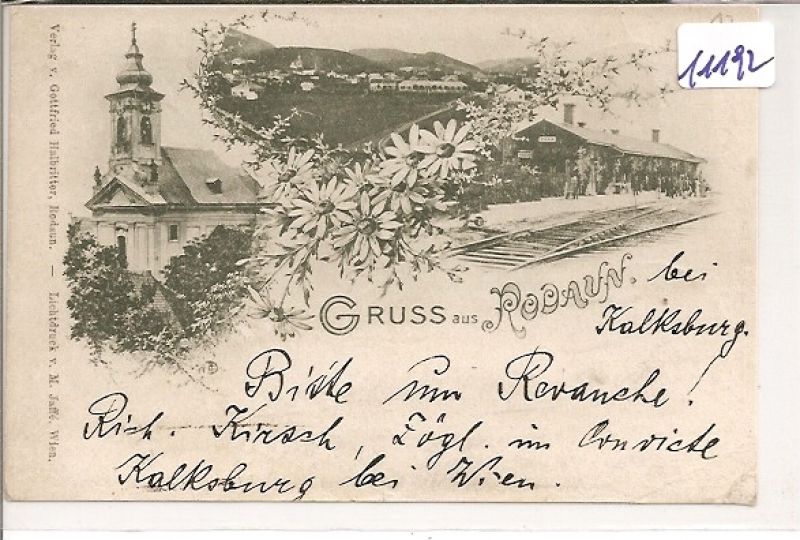 11192
Verlag v. Gottfried Halbritter, Rodaun. — Lichtdruck v. M. Jaffé, Wien.
GRUSS aus RODAUN. bei
Kalksburg.
Bitte um Revanche!
Rich. Kirsch, Zögl. im Convicte
Kalksburg bei Wien.